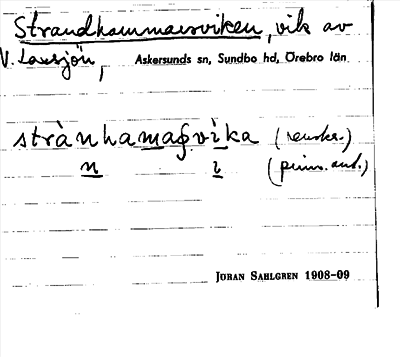 Strandhammarsviken, vik av
V. Laxsjön, Askersunds sn, Sundbo hd, Örebro län
strànhamaʂvika (renskr.)
n i (prim. ant.)
JÖRAN SAHLGREN 1908-09